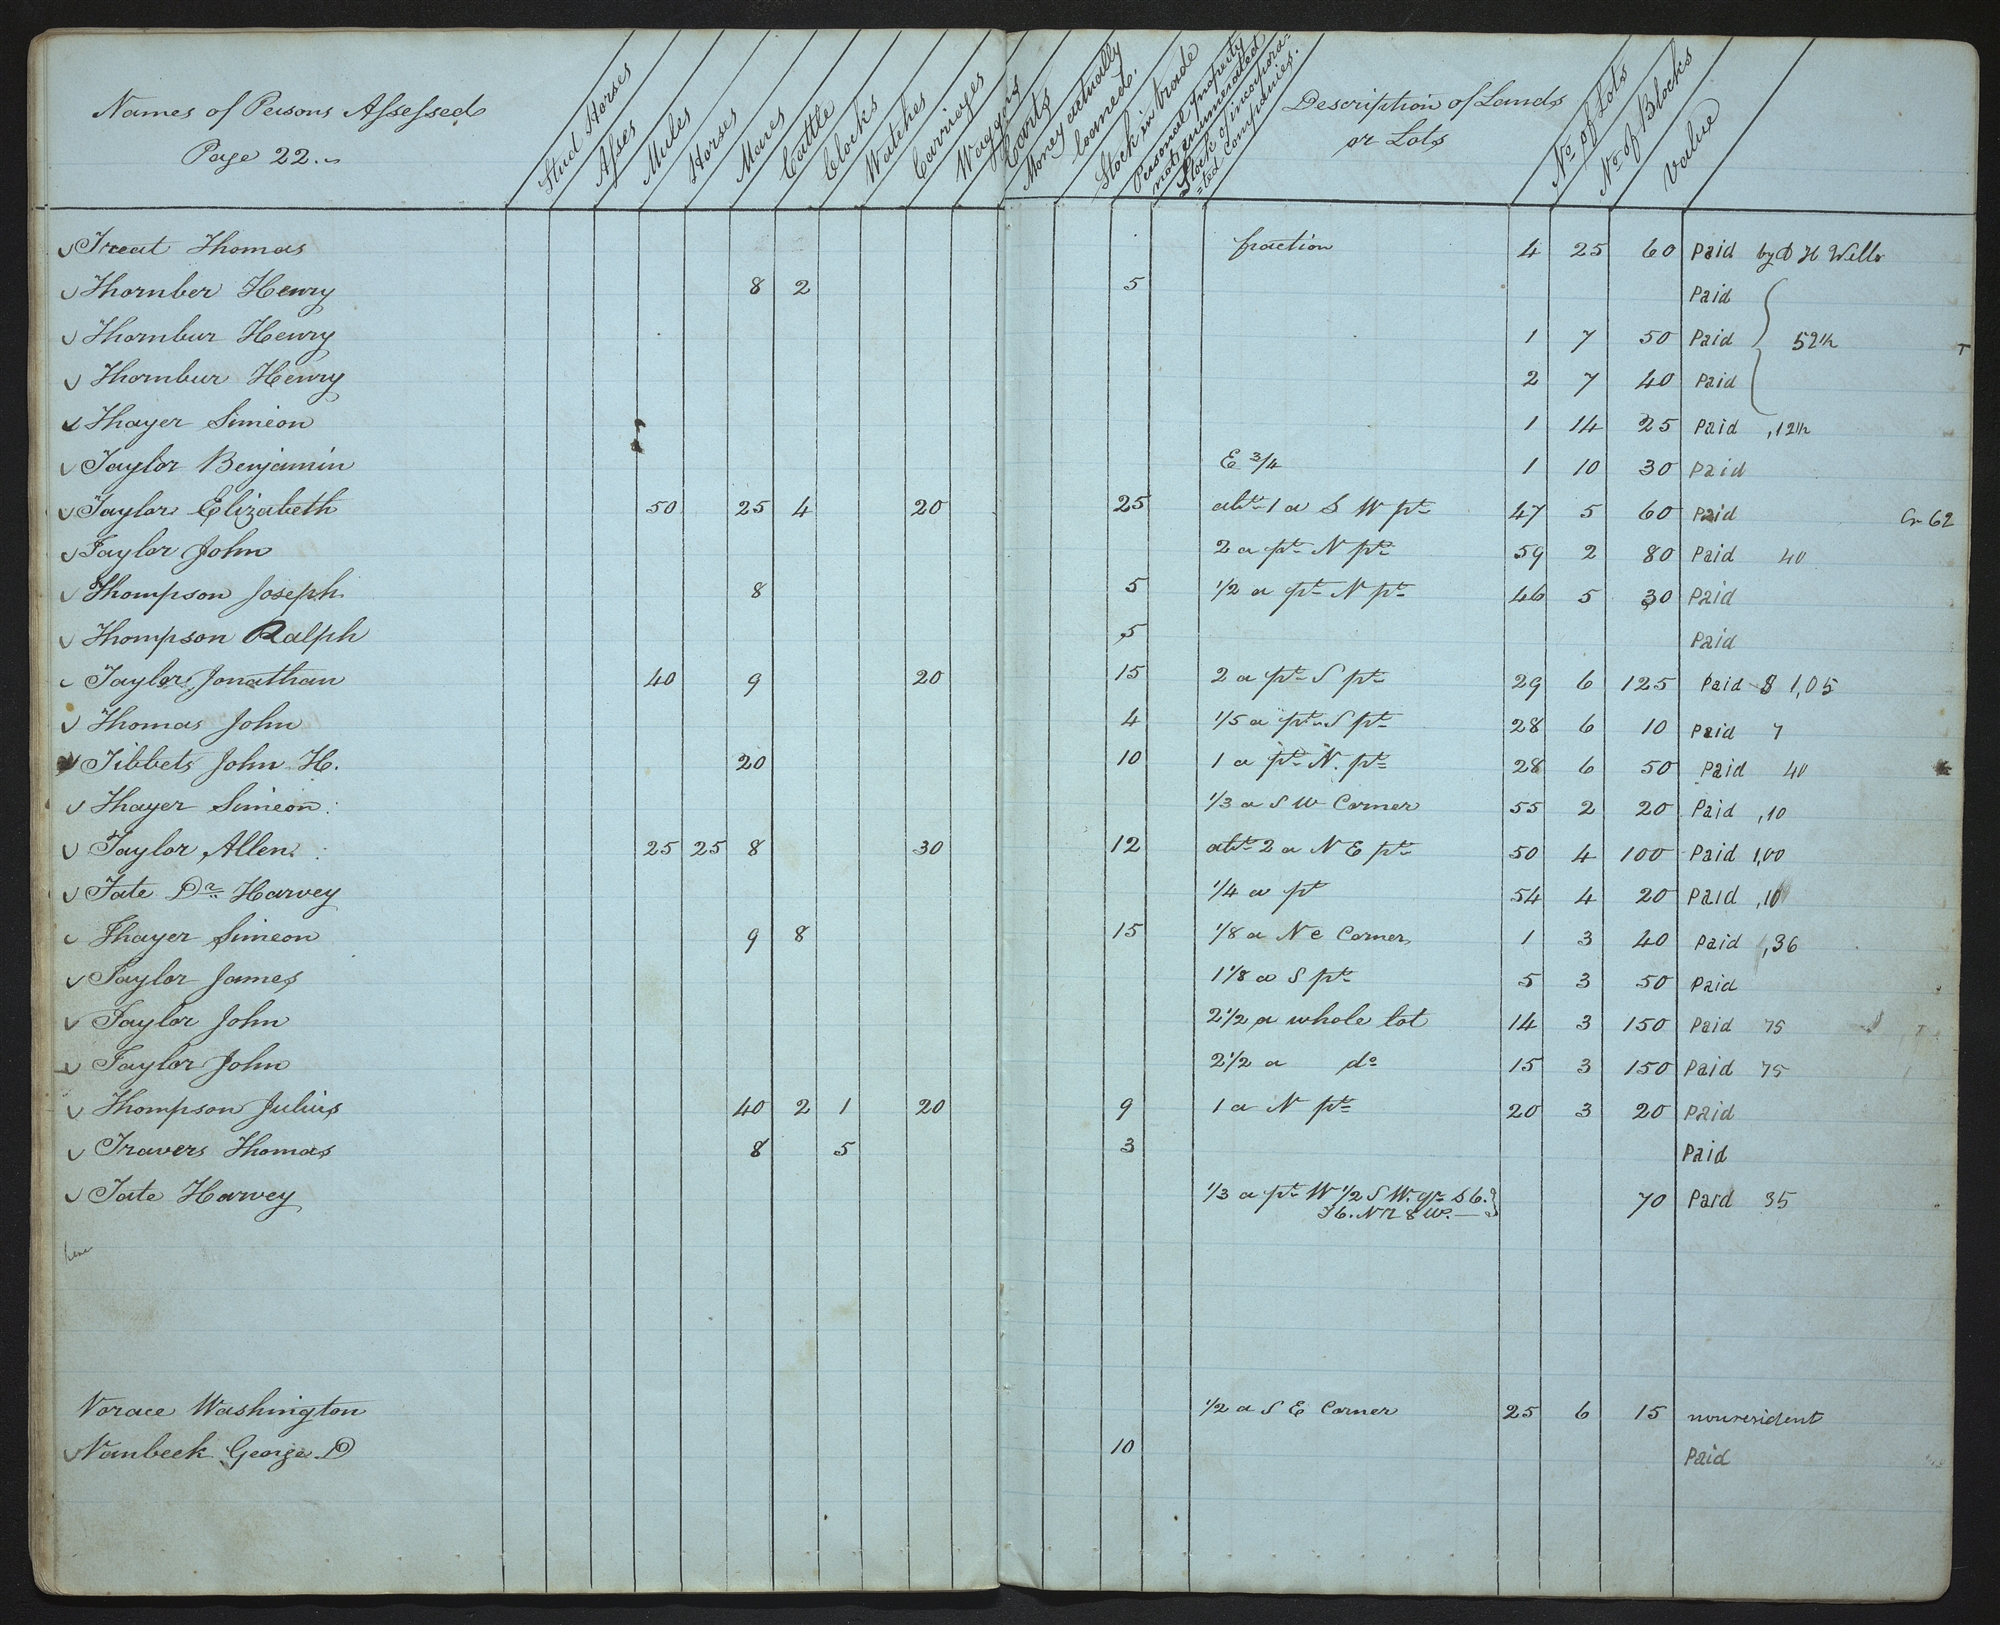 Names of Persons Assessed
Page 22.
Stud Horses
Asses
Mules
Horses
Mares
Cattle
Clocks
Watches
Carriages
Waggons
Carts
Money actually loaned.
Stock in trade
Personal Property not enumerated
Stock of incorpora=ted Companies.
Description of Lands or Lots
No. of Lots
No. of Blocks
Value
Treat Thomas fraction 4 25 60 Paid by D H Wells
Thornber Henry 8 2 5 Paid
Thornbur Henry 1 7 50 Paid 52 1/2
Thornbur Henry 2 7 40 Paid
Thayer Simeon 1 14 25 Paid ,12 1/2
Taylor Benjamin E 3/4 1 10 30 Paid
Taylor Elizabeth 50 25 4 20 25 abt 1 a S W pt 47 5 60 Paid Cr 62
Taylor John 2 a pt N pt 59 2 80 Paid 40
Thompson Joseph 8 5 1/2 a pt N pt 46 5 30 Paid
Thompson Ralph 5 Paid
Taylor Jonathan 40 9 20 15 2 a pt S pt 29 6 125 Paid $ 1,05
Thomas John 4 1/5 a pt S pt 28 6 10 Paid 7
Tibbets John H. 20 10 1 a pt N. pt 28 6 50 Paid 40
Thayer Simeon 1/3 a S W Corner 55 2 20 Paid ,10
Taylor Allen 25 25 8 30 12 abt 2 a N E pt 50 4 100 Paid 1,00
Tate Dr. Harvey 1/4 a pt 54 4 20 Paid ,10
Thayer Simeon 9 8 15 1/8 a N e Corner 1 3 40 Paid ,36
Taylor James 1 1/8 a S pt 5 3 50 Paid
Taylor John 2 1/2 a whole lot 14 3 150 Paid 75
Taylor John 2 1/2 a do 15 3 150 Paid 75
Thompson Julius 40 2 1 20 9 1 a N pt 20 3 20 Paid
Travers Thomas 8 5 3 Paid
Tate Harvey 1/3 a pt W 1/2 S W. qr S 6. 70 Paid 35
T 6. N R 8 W.
Vorace Washington 1/2 a S E Corner 25 6 15 nonresident
Vanbeek George D 10 Paid